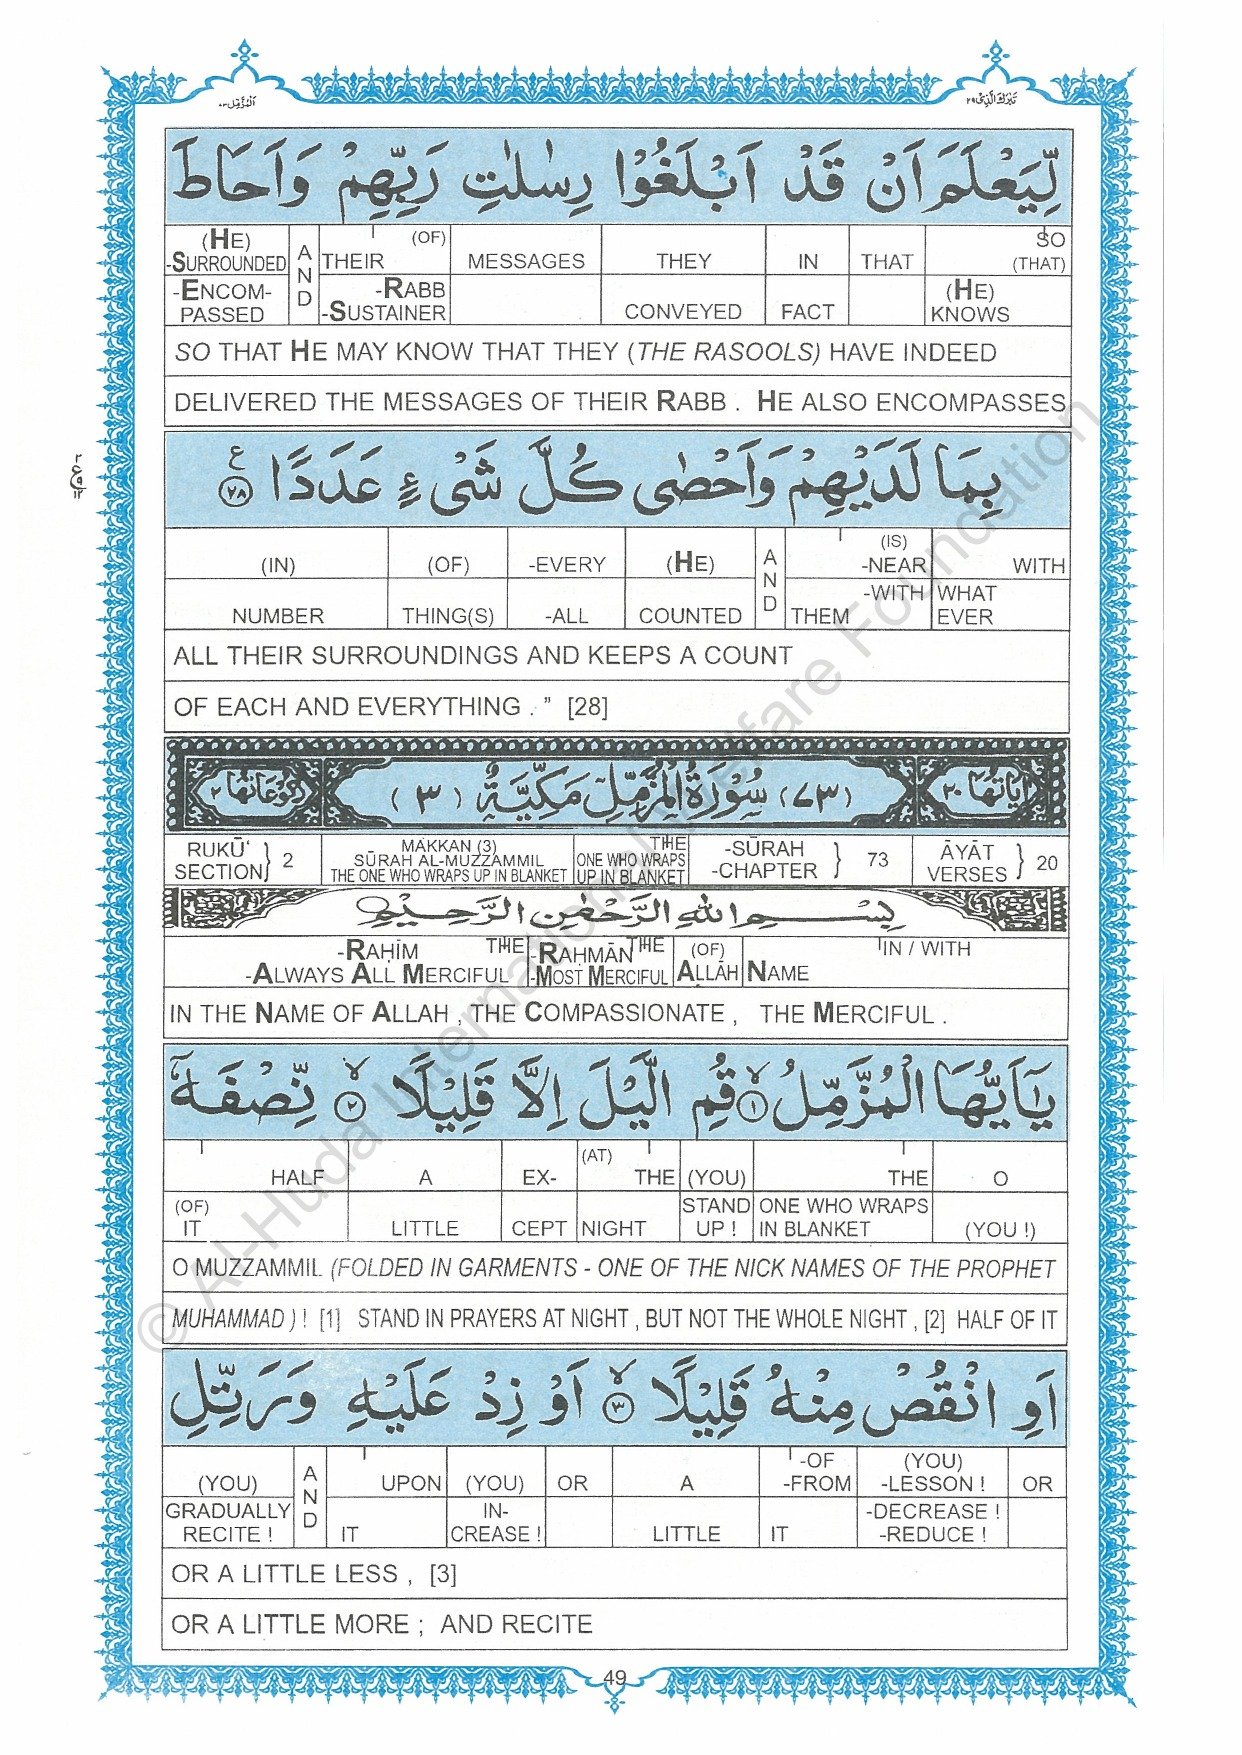 المزمل ٧٣
تبرك الذی ٢٩
لِّيَعْلَمَ اَنْ قَدْ اَبْلَغُوْا رِسٰلٰتِ رَبِّهِمْ وَاَحَاطَ
(HE) -SURROUNDED AND THEIR (OF) MESSAGES THEY IN THAT SO (THAT)
-ENCOM-PASSED -RABB -SUSTAINER CONVEYED FACT (HE) KNOWS
SO THAT HE MAY KNOW THAT THEY (THE RASOOLS) HAVE INDEED
DELIVERED THE MESSAGES OF THEIR RABB . HE ALSO ENCOMPASSES
بِمَا لَدَيْهِمْ وَاَحْصٰى كُلَّ شَىْءٍ عَدَدًا ٢٨ ع
(IN) (OF) -EVERY (HE) AND (IS) -NEAR WITH
NUMBER THING(S) -ALL COUNTED THEM -WITH WHAT EVER
ALL THEIR SURROUNDINGS AND KEEPS A COUNT
OF EACH AND EVERYTHING . ” [28]
اٰيَاتُهَا ٢٠ (٧٣) سُوْرَةُ الْمُزَّمِّلِ مَكِّيَّةٌ (٣) رُكُوْعَاتُهَا ٢
RUKŪ‘ SECTION} 2 MAKKAN (3) SŪRAH AL-MUZZAMMIL THE ONE WHO WRAPS UP IN BLANKET THE ONE WHO WRAPS UP IN BLANKET -SŪRAH -CHAPTER } 73 ĀYĀT VERSES } 20
بِسْمِ اللهِ الرَّحْمٰنِ الرَّحِيْمِ
-RAḤĪM THE -RAḤMĀN THE (OF) IN / WITH
-ALWAYS ALL MERCIFUL -MOST MERCIFUL ALLĀH NAME
IN THE NAME OF ALLAH , THE COMPASSIONATE , THE MERCIFUL .
يٰۤاَيُّهَا الْمُزَّمِّلُ ١ قُمِ الَّيْلَ اِلَّا قَلِيْلًا ٢ نِّصْفَهٗۤ
HALF A EX- (AT) THE (YOU) THE O
(OF) IT LITTLE CEPT NIGHT STAND UP ! ONE WHO WRAPS IN BLANKET (YOU !)
O MUZZAMMIL (FOLDED IN GARMENTS - ONE OF THE NICK NAMES OF THE PROPHET
MUHAMMAD ) ! [1] STAND IN PRAYERS AT NIGHT , BUT NOT THE WHOLE NIGHT , [2] HALF OF IT
اَوِ انْقُصْ مِنْهُ قَلِيْلًا ٣ اَوْ زِدْ عَلَيْهِ وَرَتِّلِ
(YOU) AND UPON (YOU) OR A -OF -FROM (YOU) -LESSON ! OR
GRADUALLY RECITE ! IT IN-CREASE ! LITTLE IT -DECREASE ! -REDUCE !
OR A LITTLE LESS , [3]
OR A LITTLE MORE ; AND RECITE
49
© Al-Huda International Welfare Foundation